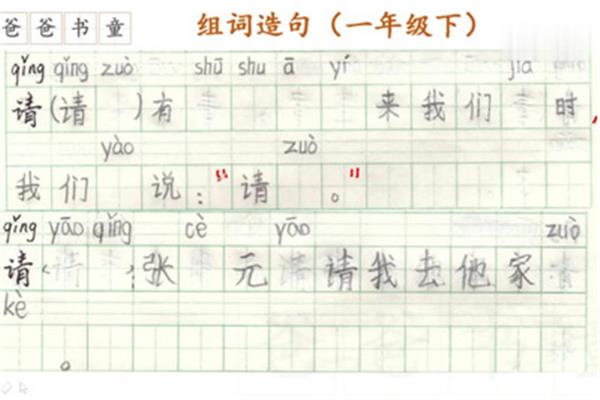 爸爸书童 组词造句（一年级下）
qǐng qǐng zuò shū shu ā yí jiā
请(请 )有 来我们 时,
yào zuò
我们 说："请 。"
qǐng yāo qǐng cè yāo zuò
请(请 ):张 元 请我去他家
kè
。